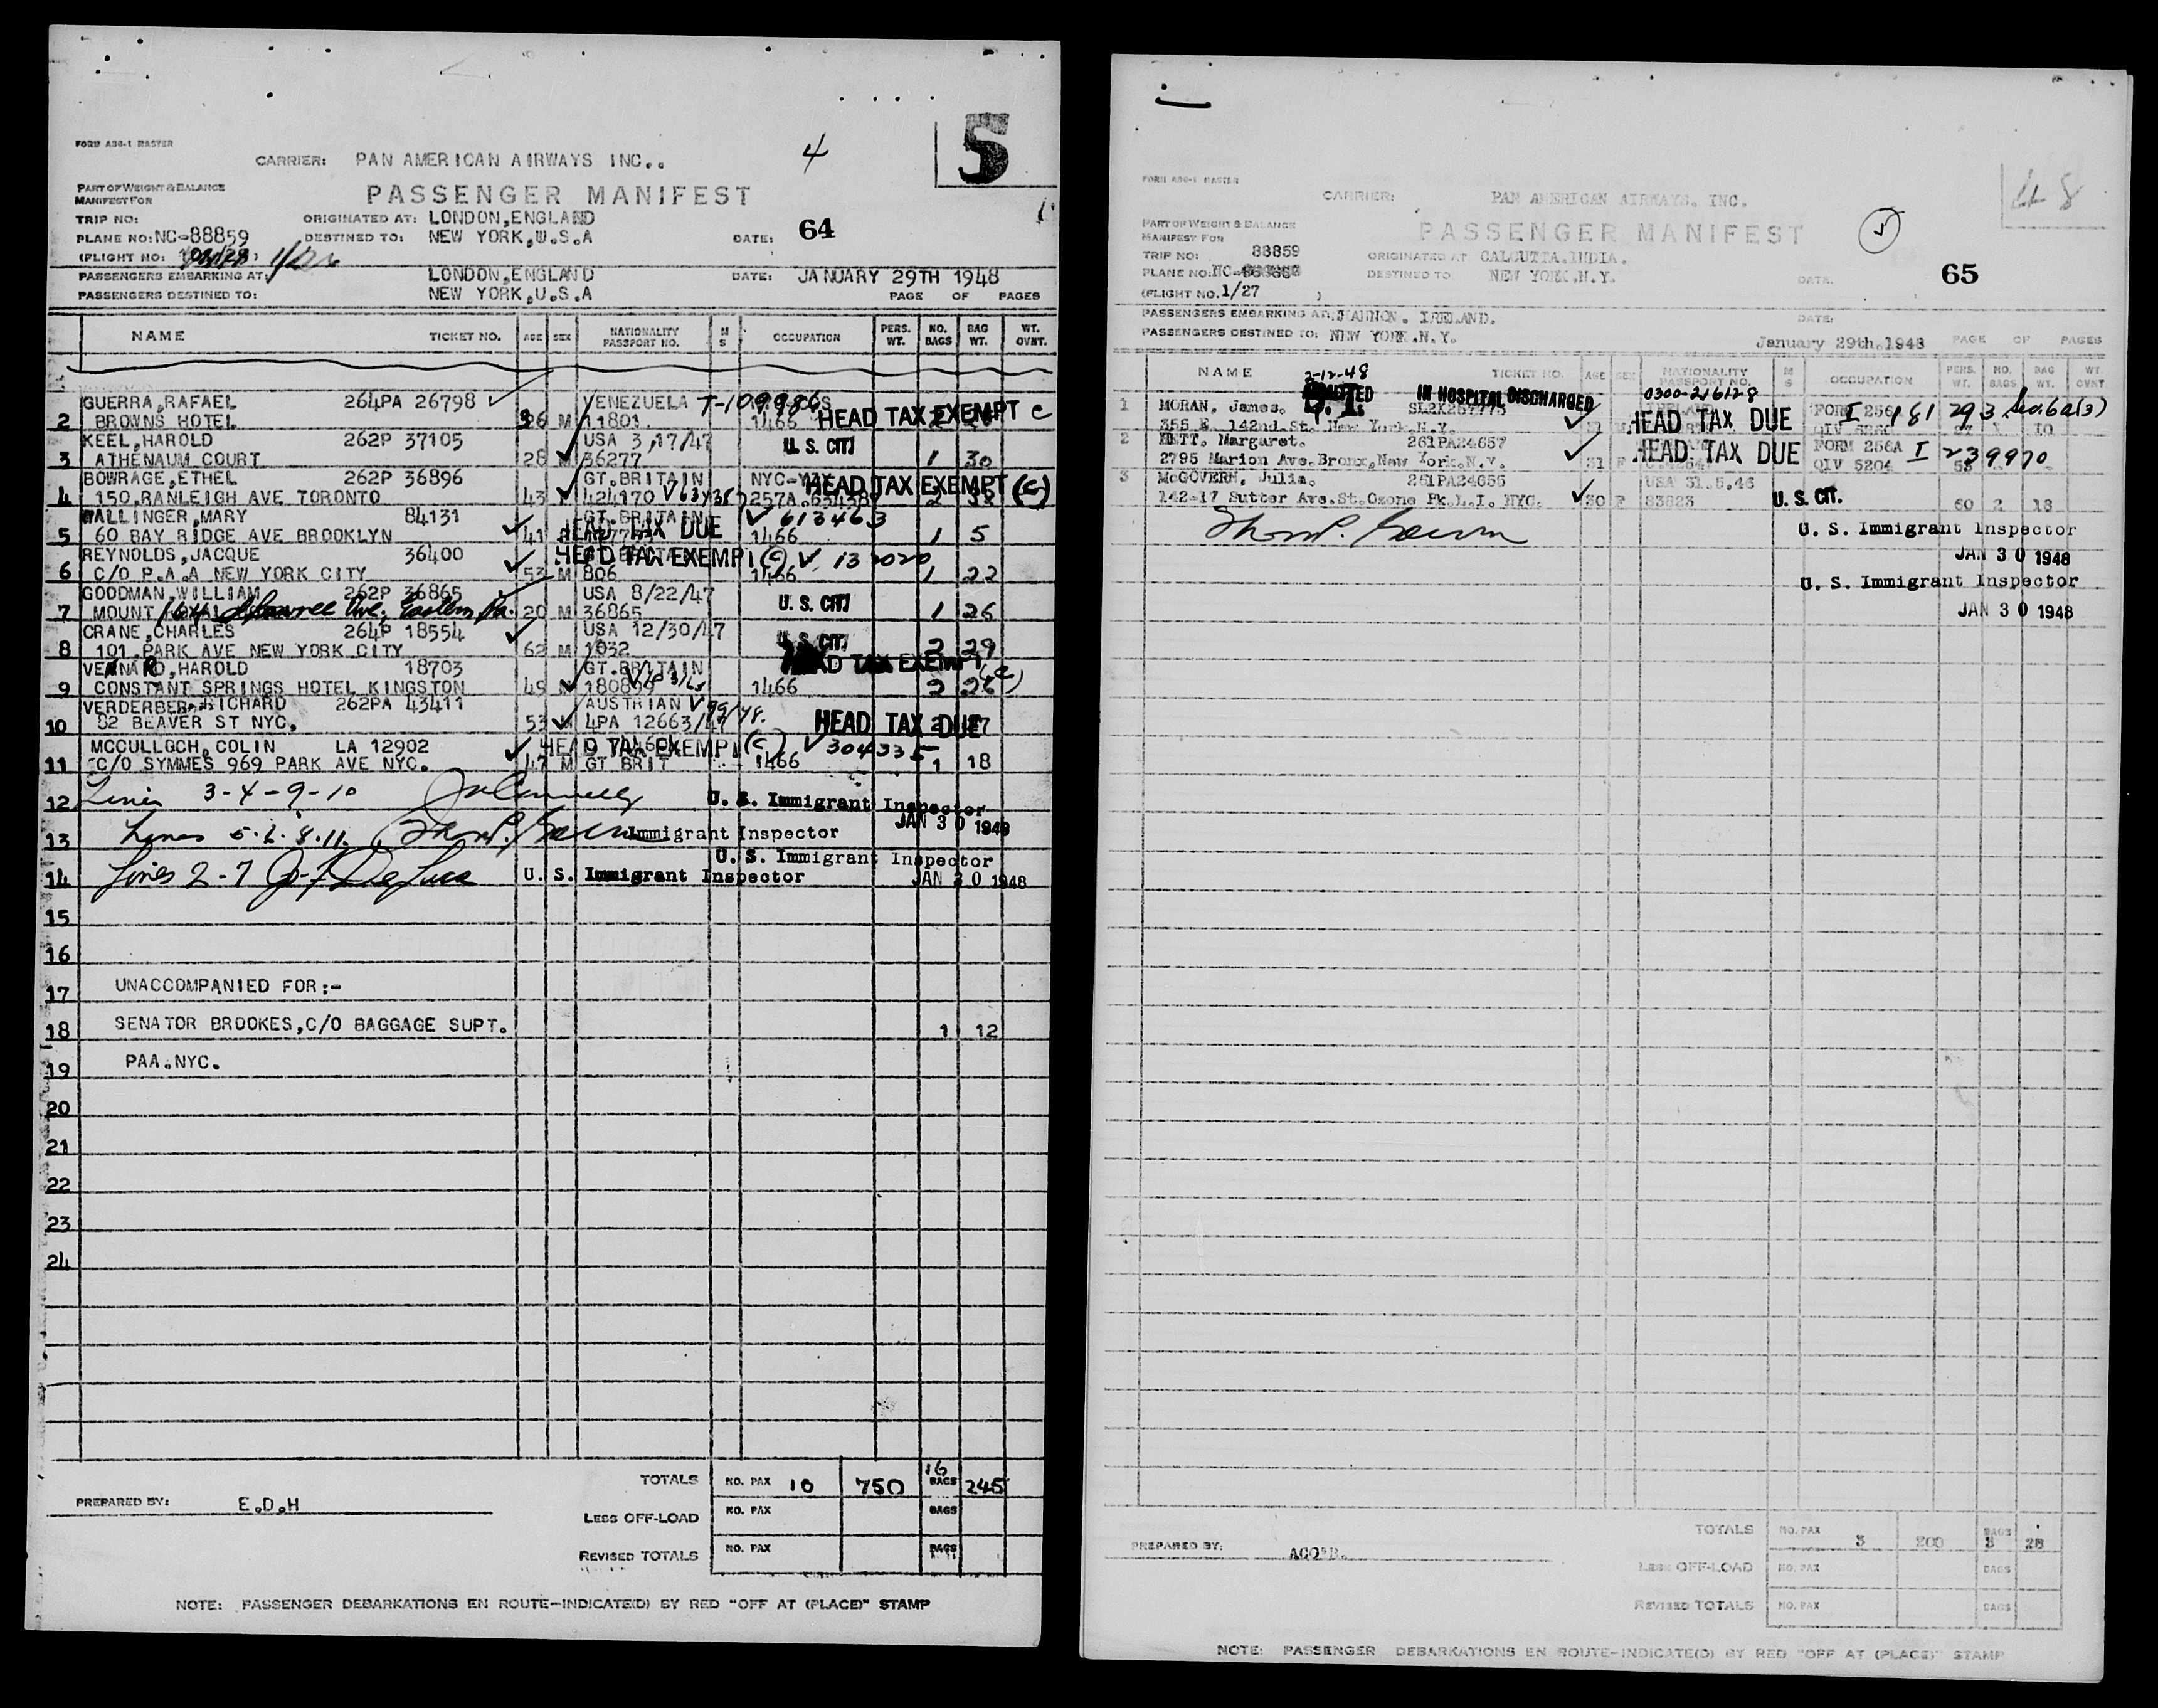 FORM ABG-1 MASTER
5
4
CARRIER: PAN AMERICAN AIRWAYS INC..
PART OF WEIGHT & BALANCE
MANIFEST FOR
PASSENGER MANIFEST
TRIP NO:
ORIGINATED AT: LONDON,ENGLAND
PLANE NO:NC-88859
DESTINED TO: NEW YORK,U.S.A
DATE: 64
(FLIGHT NO:
PASSENGERS EMBARKING AT: LONDON,ENGLAND
DATE: JANUARY 29TH 1948
PASSENGERS DESTINED TO: NEW YORK,U.S.A
PAGE OF PAGES
NAME TICKET NO. AGE SEX NATIONALITY PASSPORT NO. M S OCCUPATION PERS. WT. NO. BAGS BAG WT. WT. OVNT.
GUERRA,RAFAEL 264PA 26798 VENEZUELA T-109986
2 BROWNS HOTEL 26 M 11801 1466 HEAD TAX EXEMPT C
KEEL,HAROLD 262P 37105 USA 3,17/47 U. S. CIT.
3 ATHENAUM COURT 28 M 36277 1 30
BOWRAGE,ETHEL 262P 36896 GT.BRITAIN HEAD TAX EXEMPT (C)
4 150.RANLEIGH AVE TORONTO 43 424170 257A
WALLINGER,MARY 84131 GT.BRITAIN 613463
5 60 BAY RIDGE AVE BROOKLYN 41 HEAD TAX DUE 1466 1 5
REYNOLDS,JACQUE 36400 HEAD TAX EXEMPT (C) 132020
6 C/O P.A.A NEW YORK CITY 53 M 806 1466 1 22
GOODMAN,WILLIAM 262P 36865 USA 8/22/47 U. S. CIT.
7 MOUNT 20 M 36865 1 26
CRANE,CHARLES 264P 18554 USA 12/30/47 U. S. CIT.
8 101.PARK AVE NEW YORK CITY 62 M 1032 2 29
VERNARD,HAROLD 18703 GT.BRITAIN HEAD TAX EXEMPT (C)
9 CONSTANT SPRINGS HOTEL KINGSTON 49 M 180899 1466 2 26
VERDERBER,RICHARD 262PA 43411 AUSTRIAN
10 82 BEAVER ST NYC, 53 M 4PA 12663/47 HEAD TAX DUE
MCCULLOCH,COLIN LA 12902 HEAD TAX EXEMPT (C) 304335
11 C/O SYMMES 969 PARK AVE NYC. 47 M GT BRIT 1466 1 18
12 Lines 3-4-9-10 U. S. Immigrant Inspector
JAN 30 1948
13 Lines 5.6.8.11. Immigrant Inspector
U. S. Immigrant Inspector
14 Lines 2-7 J-F DeLuca U. S. Immigrant Inspector JAN 30 1948
15
16
17 UNACCOMPANIED FOR:-
18 SENATOR BROOKES,C/O BAGGAGE SUPT. 1 12
19 PAA.NYC.
20
21
22
23
24
TOTALS NO. PAX 10 750 16 BAGS 245
PREPARED BY: E.D.H
LESS OFF-LOAD NO. PAX BAGS
REVISED TOTALS NO. PAX BAGS
NOTE: PASSENGER DEBARKATIONS EN ROUTE-INDICATE(D) BY RED "OFF AT (PLACE)" STAMP
FORM ABG-1 MASTER
CARRIER: PAN AMERICAN AIRWAYS. INC.
PART OF WEIGHT & BALANCE
MANIFEST FOR
PASSENGER MANIFEST
TRIP NO: 88859
ORIGINATED AT CALCUTTA.INDIA.
PLANE NO:NC-
DESTINED TO NEW YORK.N.Y.
DATE. 65
(FLIGHT NO.1/27 )
PASSENGERS EMBARKING AT:SHANNON. IRELAND.
DATE:
PASSENGERS DESTINED TO: NEW YORK.N.Y.
January 29th.1948 PAGE OF PAGES
NAME TICKET NO. AGE SEX NATIONALITY PASSPORT NO. M S OCCUPATION PERS. WT. NO. BAGS BAG WT. WT. OVNT.
2-12-48
ADMITTED IN HOSPITAL DISCHARGED 0300-216128
1 MORAN, James. HEAD TAX DUE I 181 293 Sec.6a(3)
355 E. 142nd.St. New York.N.Y. 10
2 HETT. Margaret. 261PA24657 HEAD TAX DUE FORM 256A I 239970
2795 Marion Ave.Bronx,New York.N.Y. 31 F QIV 5204
3 McGOVERN, Julia. 261PA24656 USA 31.5.46
142-17 Sutter Ave.St.Ozone Pk.L.I. NYC. 30 F 83823 U. S. CIT. 60 2 18
U. S. Immigrant Inspector
JAN 30 1948
U. S. Immigrant Inspector
JAN 30 1948
TOTALS NO. PAX 3 200 BAGS 3 28
PREPARED BY: ACO'R.
LESS OFF-LOAD NO. PAX BAGS
REVISED TOTALS NO. PAX BAGS
NOTE: PASSENGER DEBARKATIONS EN ROUTE-INDICATE(D) BY RED "OFF AT (PLACE)" STAMP